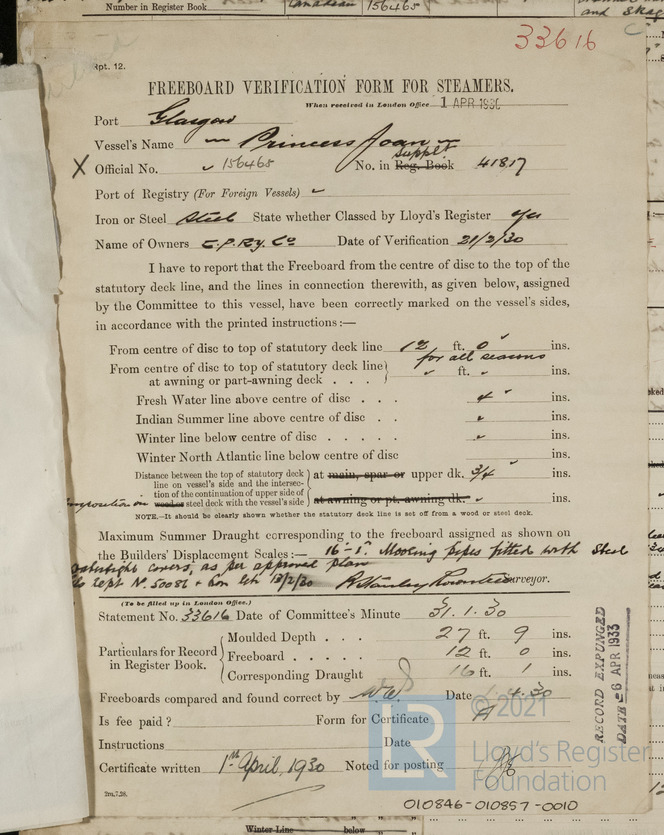 Number in Register Book Canadian 156465
and
33616
Rpt. 12.
FREEBOARD VERIFICATION FORM FOR STEAMERS.
When received in London Office 1 APR 1930
Port Glasgow
Vessel's Name Princess Joan
Supplt
X Official No. 156465 No. in Reg. Book 41817
Port of Registry (For Foreign Vessels)
Iron or Steel Steel State whether Classed by Lloyd's Register yes
Name of Owners C.P.Ry. Co Date of Verification 21/2/30
I have to report that the Freeboard from the centre of disc to the top of the
statutory deck line, and the lines in connection therewith, as given below, assigned
by the Committee to this vessel, have been correctly marked on the vessel's sides,
in accordance with the printed instructions:—
From centre of disc to top of statutory deck line 12 ft. 0 ins.
for all seasons
From centre of disc to top of statutory deck line
at awning or part-awning deck . . . " ft. " ins.
Fresh Water line above centre of disc . . 4 " ins.
Indian Summer line above centre of disc . . " ins.
Winter line below centre of disc . . . . . " ins.
Winter North Atlantic line below centre of disc " ins.
Distance between the top of statutory deck
line on vessel's side and the intersec-
tion of the continuation of upper side of
composition on wood or steel deck with the vessel's side
at main, spar or upper dk. 3/4 ins.
at awning or pt. awning dk. " ins.
NOTE.—It should be clearly shown whether the statutory deck line is set off from a wood or steel deck.
Maximum Summer Draught corresponding to the freeboard assigned as shown on
the Builders' Displacement Scales:— 16'-1". Mooring pipes fitted with Steel
watertight covers, as per approved plan
Rept No. 50086 + 13/2/30 Surveyor.
(To be filled up in London Office.)
Statement No. 33616 Date of Committee's Minute 31.1.30
Particulars for Record
in Register Book.
Moulded Depth . . . 27 ft. 9 ins.
Freeboard . . . . . 12 ft. 0 ins.
Corresponding Draught 16 ft. 1 ins.
Freeboards compared and found correct by Date 4.30
Is fee paid? Form for Certificate A
Instructions Date
Certificate written 1st April, 1930 Noted for posting
2m,7,28.
RECORD EXPUNGED
DATE 6 APR 1933
© 2021
LR
Lloyd's Register
Foundation
010846-010857-0010
Winter Line below